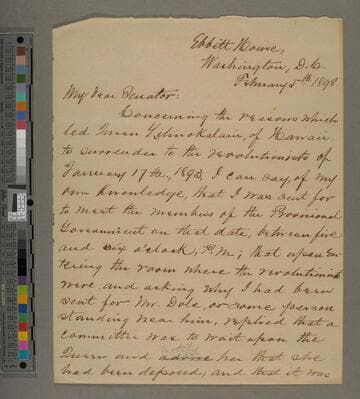 Ebbitt House,
Washington, D.C.
February 5th 1898.
My Dear Senator:
Concerning the reasons which
led Queen Liliuokalani, of Hawaii,
to surrender to the revolutionists of
January 17th, 1893, I can say, of my
own knowledge, that I was sent for
to meet the members of the Provisional
Government on that date, between five
and six o'clock, P.M.; that upon en-
tering the room where the revolutionists
were, and asking why I had been
sent for Mr. Dole, or some person
standing near him, replied that a
committee was to wait upon the
Queen and advise her that she
had been deposed, and that it was